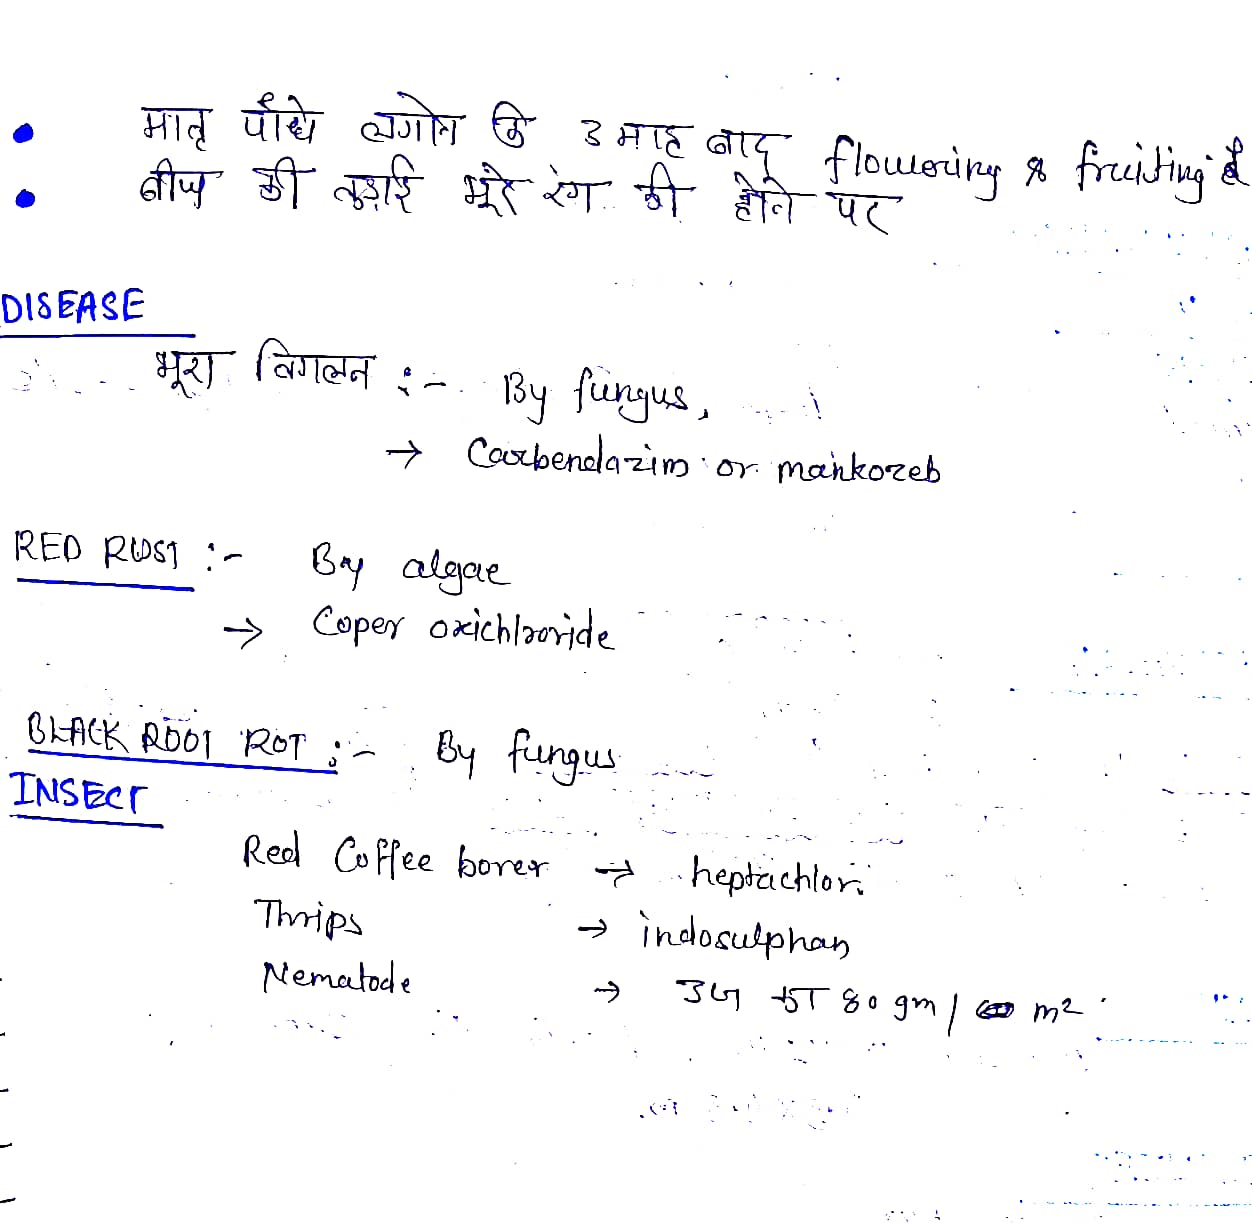 • मातृ पौधे लगाने के 3 माह बाद flowering & fruiting
• बीज की तुड़ाई भूरे रंग की होने पर
DISEASE
भूरा विगलन :- By fungus,
→ Carbendazim or mankozeb
RED RUST :- By algae
→ Coper oxichlooride
BLACK ROOT ROT :- By fungus
INSECT
Red Coffee borer → heptachlor.
Thrips → indosulphan
Nematode → 3G का 80 gm / m²